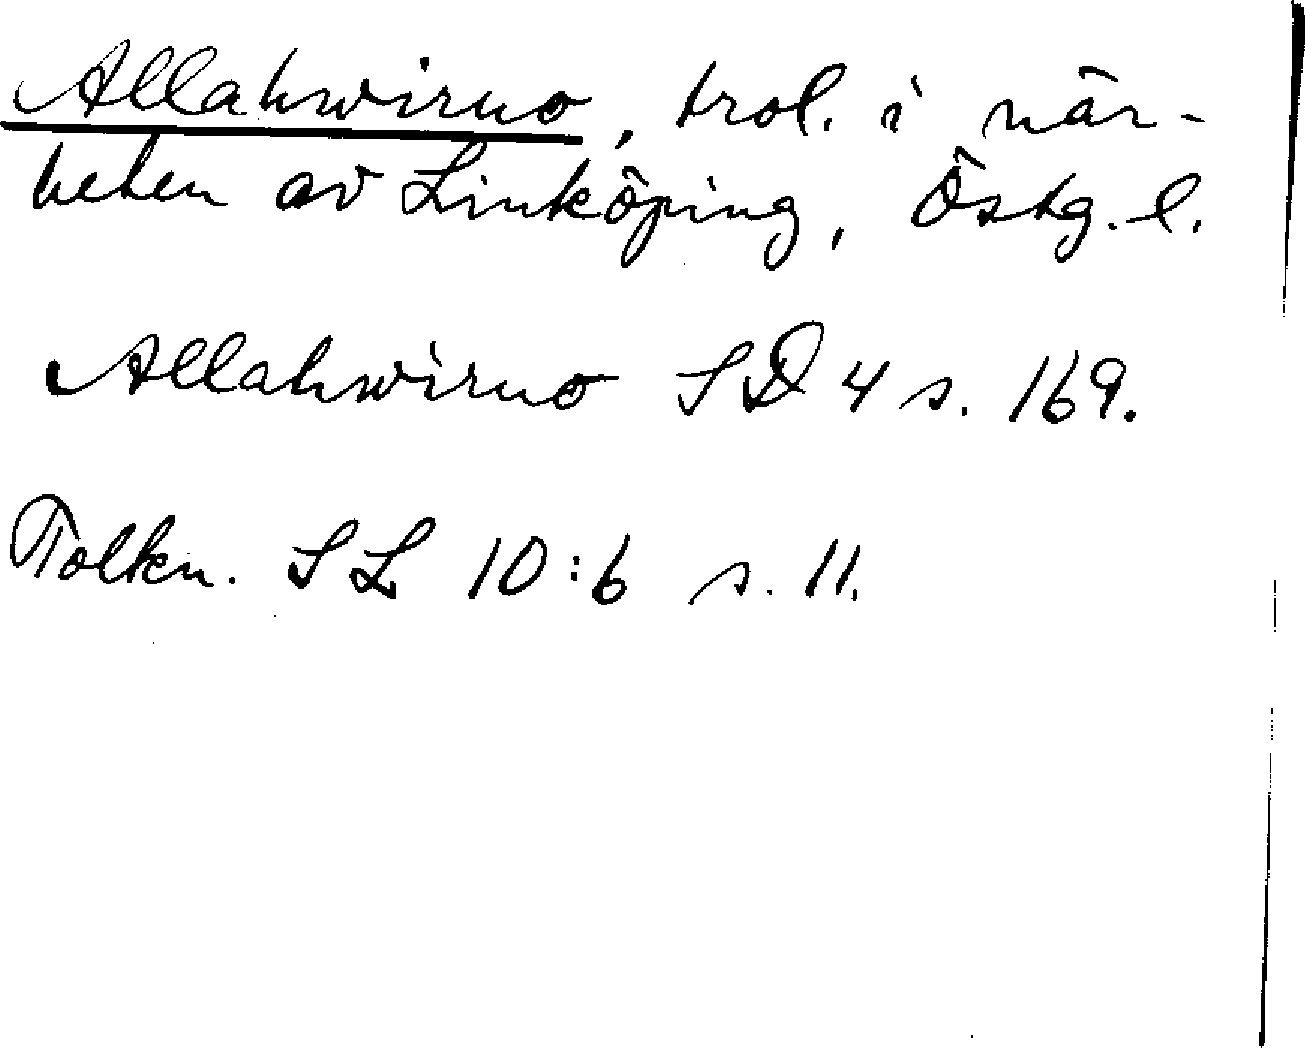 Allahwirno, trol. i när-
heten av Linköping, Östg. l.
Allahwirno SD 4 s. 169.
Tolkn. SL 10:6 s. 11.